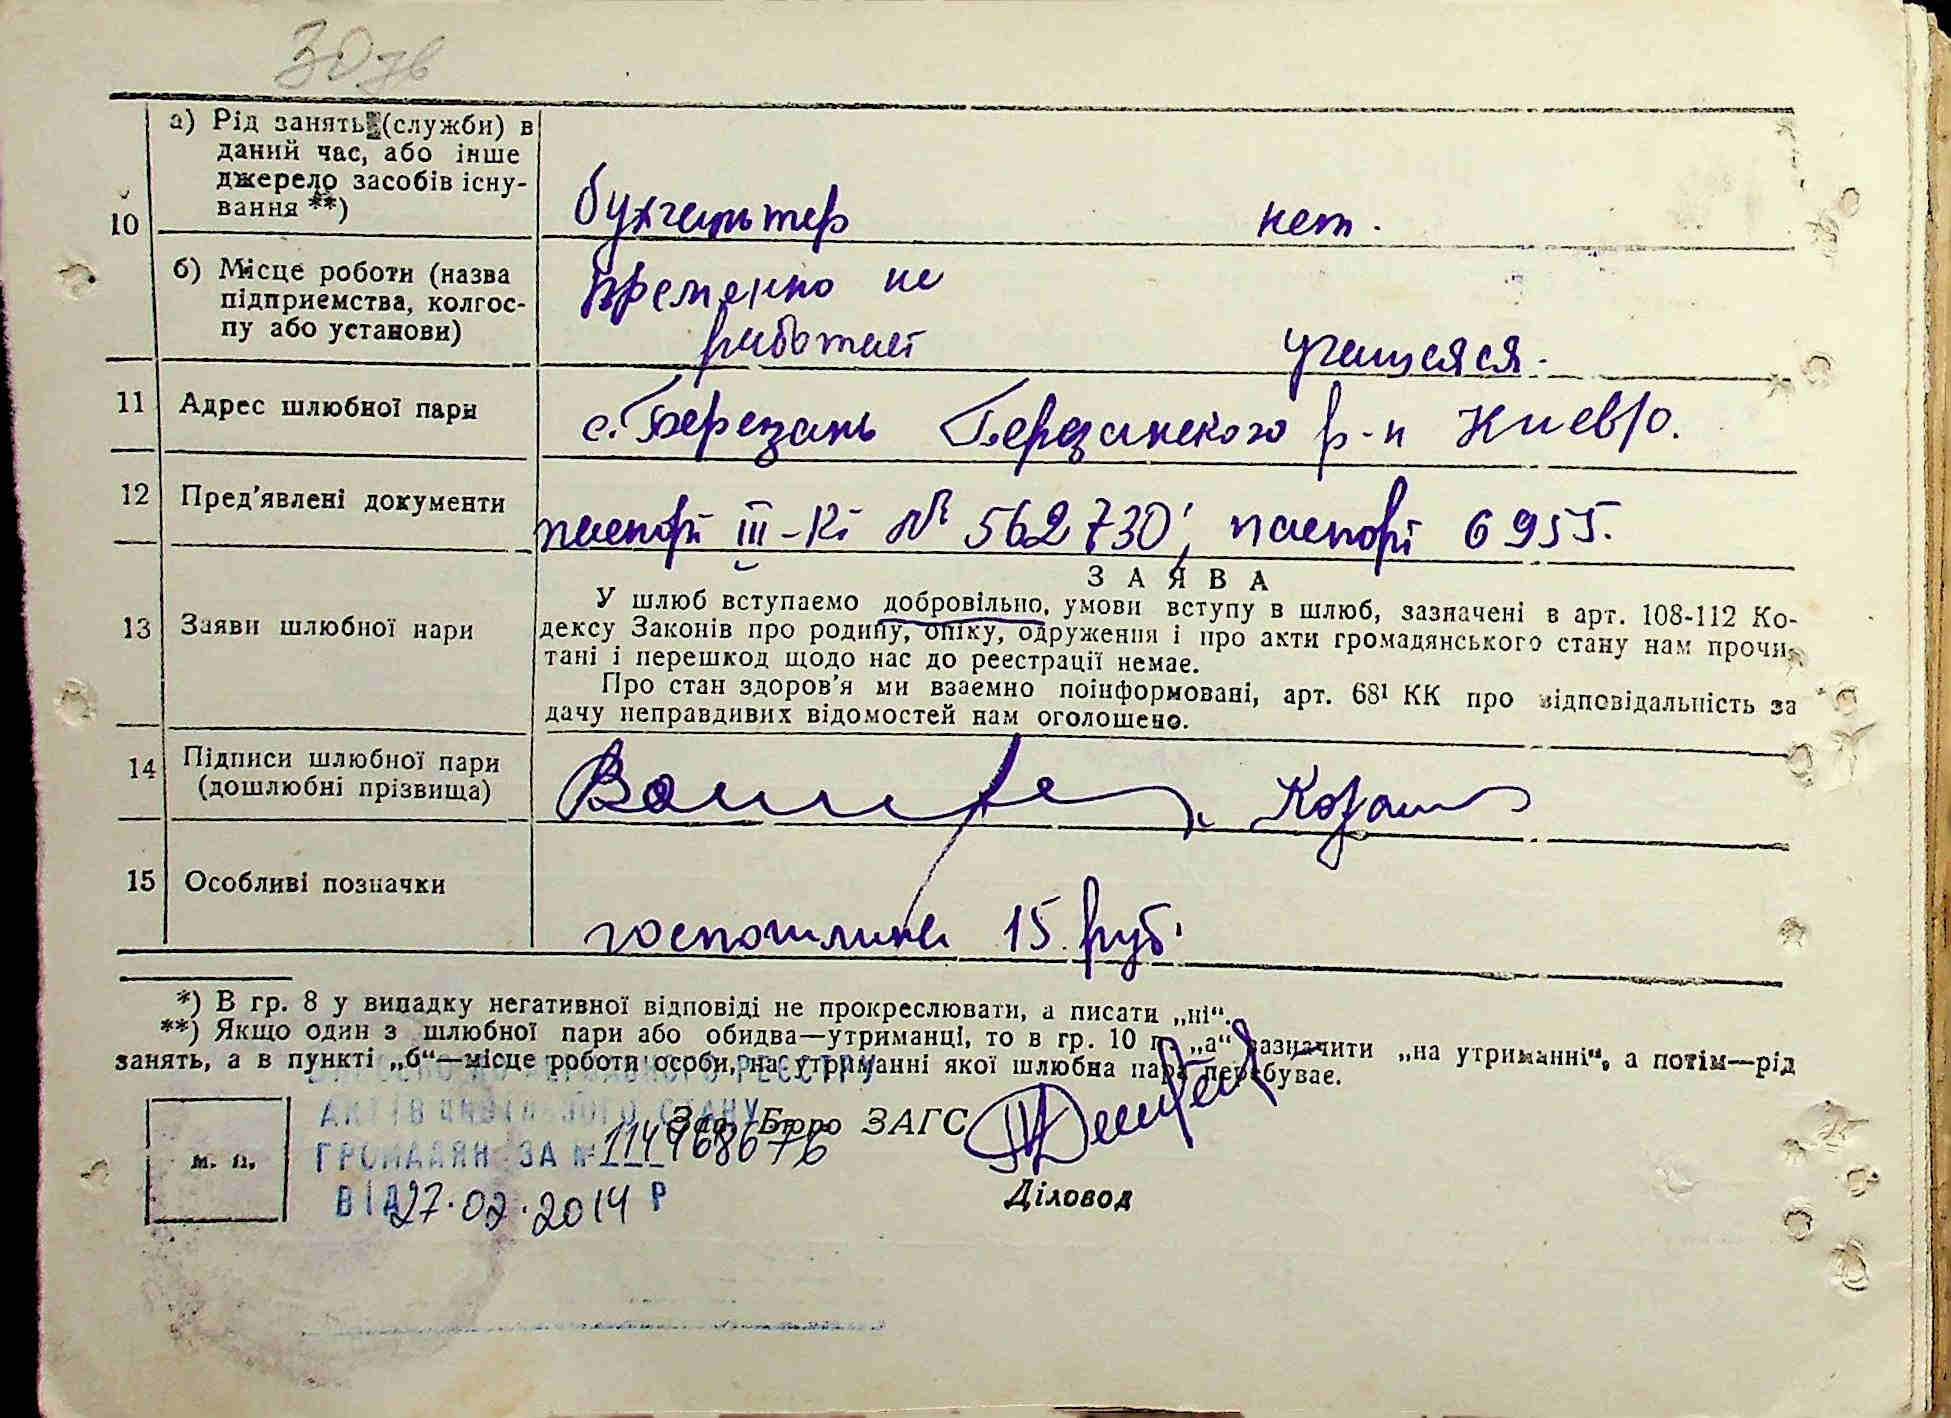 30 зв
10
а) Рід занять (служби) в
даний час, або інше
джерело засобів існу-
вання **)
бухгалтер нет.
б) Місце роботи (назва
підприємства, колгос-
пу або установи)
временно не
работает учащаяся.
11 Адрес шлюбної пари
с. Березань Березанского р-н Киев/о.
12 Пред'явлені документи
паспорт III-КІ № 562730; паспорт 6955.
13 Заяви шлюбної пари
ЗАЯВА
У шлюб вступаємо добровільно, умови вступу в шлюб, зазначені в арт. 108-112 Ко-
дексу Законів про родину, опіку, одруження і про акти громадянського стану нам прочи-
тані і перешкод щодо нас до реєстрації немає.
Про стан здоров'я ми взаємно поінформовані, арт. 68¹ КК про відповідальність за
дачу неправдивих відомостей нам оголошено.
14 Підписи шлюбної пари
(дошлюбні прізвища)
15 Особливі позначки
госпошлина 15 руб.
*) В гр. 8 у випадку негативної відповіді не прокреслювати, а писати „ні“.
**) Якщо один з шлюбної пари або обидва—утриманці, то в гр. 10 п. „а“ зазначити „на утриманні“, а потім—рід
занять, а в пункті „б“—місце роботи особи, на утриманні якої шлюбна пара перебуває.
РЕЄСТРУ
АКТІВ ЦИВІЛЬНОГО СТАНУ
Зав. Бюро ЗАГС
ГРОМАДЯН ЗА №
м. п.
ВІД 27.02.2014 Р
Діловод